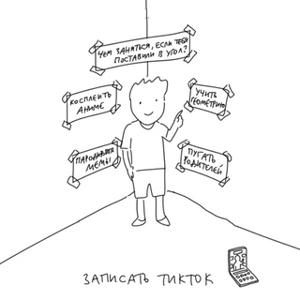 ЧЕМ ЗАНЯТЬСЯ, ЕСЛИ ТЕБЯ
ПОСТАВИЛИ В УГОЛ?
КОСПЛЕИТЬ
АНИМЕ
УЧИТЬ
ГЕОМЕТРИЮ
ПАРОДИРОВАТЬ
МЕМЫ
ПУГАТЬ
РОДИТЕЛЕЙ
ЗАПИСАТЬ ТИКТОК